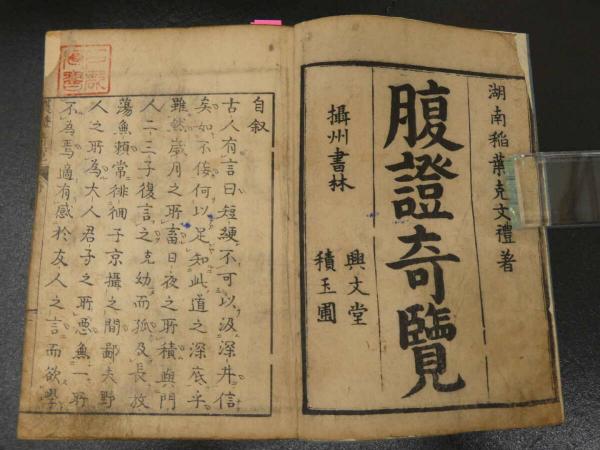 湖南稲葉克文禮著
腹證奇覽
攝州書林
興文堂
積玉圃
自叙
古人有言曰短綆不可以汲深井信
矣如不佞何以足知此道之深底乎
雖然歳月之所畜日夜之所積與門
人二三子復言之克幼而孤及長放
蕩魚頼常徘徊于京攝之間鄙夫野
人之所為大人君子之所悪無一所
不為焉適有感於友人之言而欲學